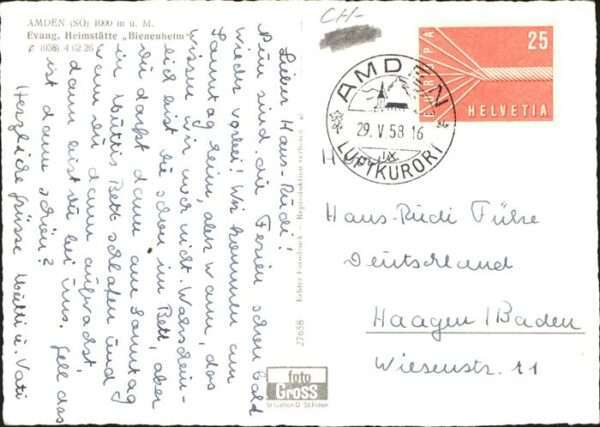 AMDEN (SG) 1000 m ü. M.
Evang. Heimstätte „Bienenheim"
(058) 4 62 26
Lieber Hans-Rudi!
Nun sind die Ferien schon bald
wieder vorbei! Wir kommen am
Sonntag heim, aber wann, das
wissen wir noch nicht. Warschein-
lich bist du schon im Bett, aber
du darfst dann am Sonntag
in Muttis Bett schlafen und
wenn du dann aufwachst,
dann bist du bei uns. Gell das
ist dann schön?
Herzliche Grüsse Mutti u. Vati
27658
foto
GROSS
CH-
AMDEN
29. V 58 16
LUFTKURORT
EUROPA
25
HELVETIA
H
Hans-Rudi Führe
Deutschland
Haagen / Baden
Wiesenstr. 11